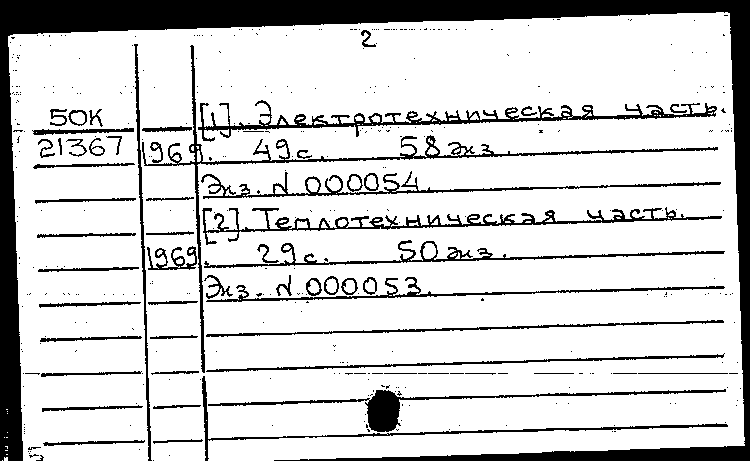 2
50К [1]. Электротехническая часть.
21367 1969. 49с. 58экз.
Экз. N 000054.
[2]. Теплотехническая часть.
1969. 29с. 50экз.
Экз. N 000053.
5